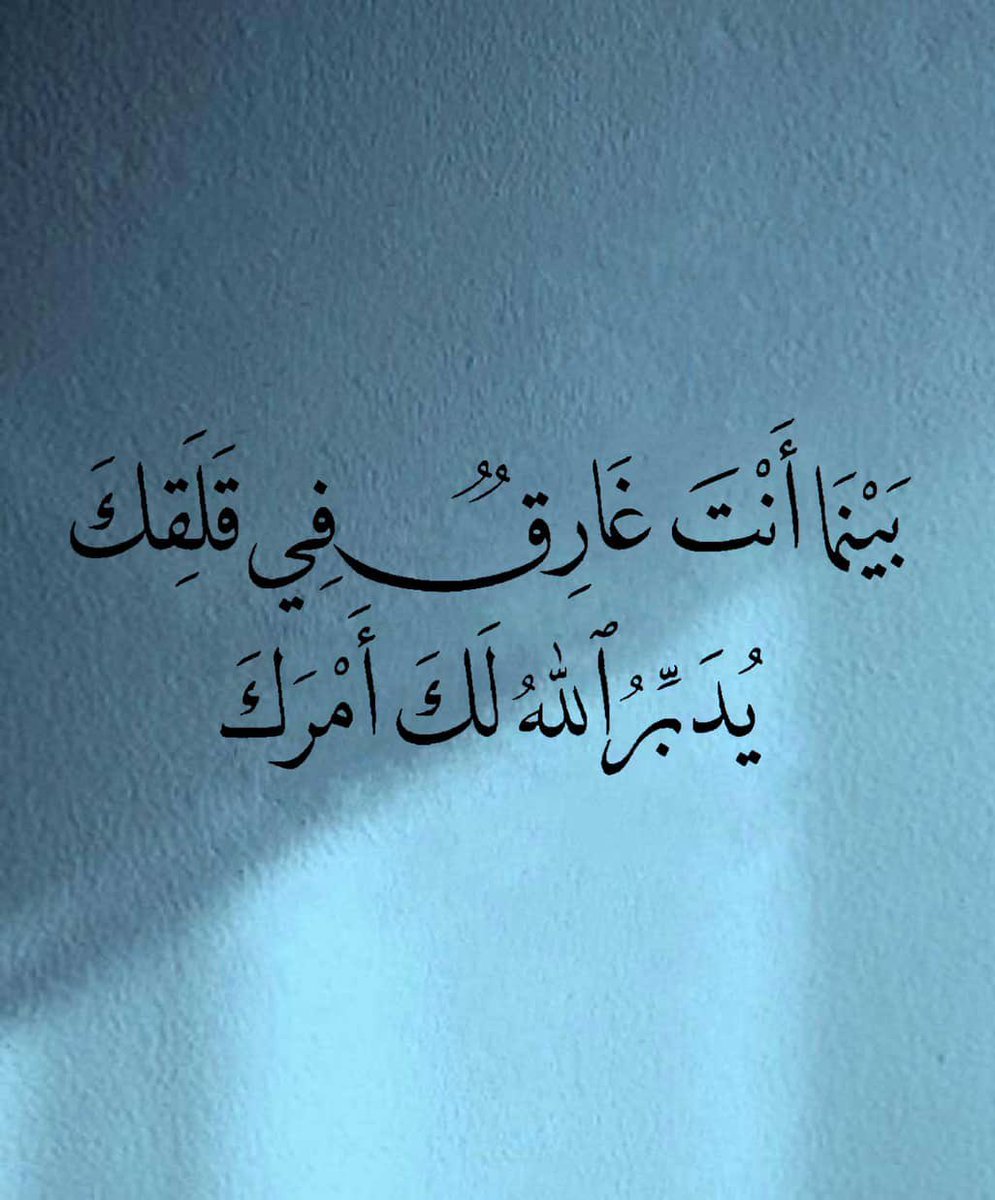 بَيْنَمَا أَنْتَ غَارِقٌ فِي قَلَقِكَ
يُدَبِّرُ ٱللَّهُ لَكَ أَمْرَكَ